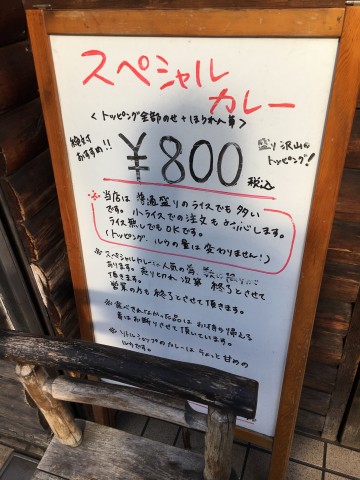 スペシャル
カレー
<トッピング全部のせ+ほうれん草>
絶対
おすすめ!!
¥800
税込
盛り沢山の
トッピング!
※当店は普通盛りのライスでも多い
です。小ライスでの注文も
ライス無しでもOKです。
(トッピング、ルウの量は変わりません!)
※スペシャルカレーは人気の為、数に限りが
あります。売り切れ次第 終了とさせて
頂きます。
営業の方も 終了とさせて頂きます。
※食べきれなかった品は お持ち帰る
事はお断りさせて頂いています。
※リトルショップのカレーはちょっと甘めの
ルウです。